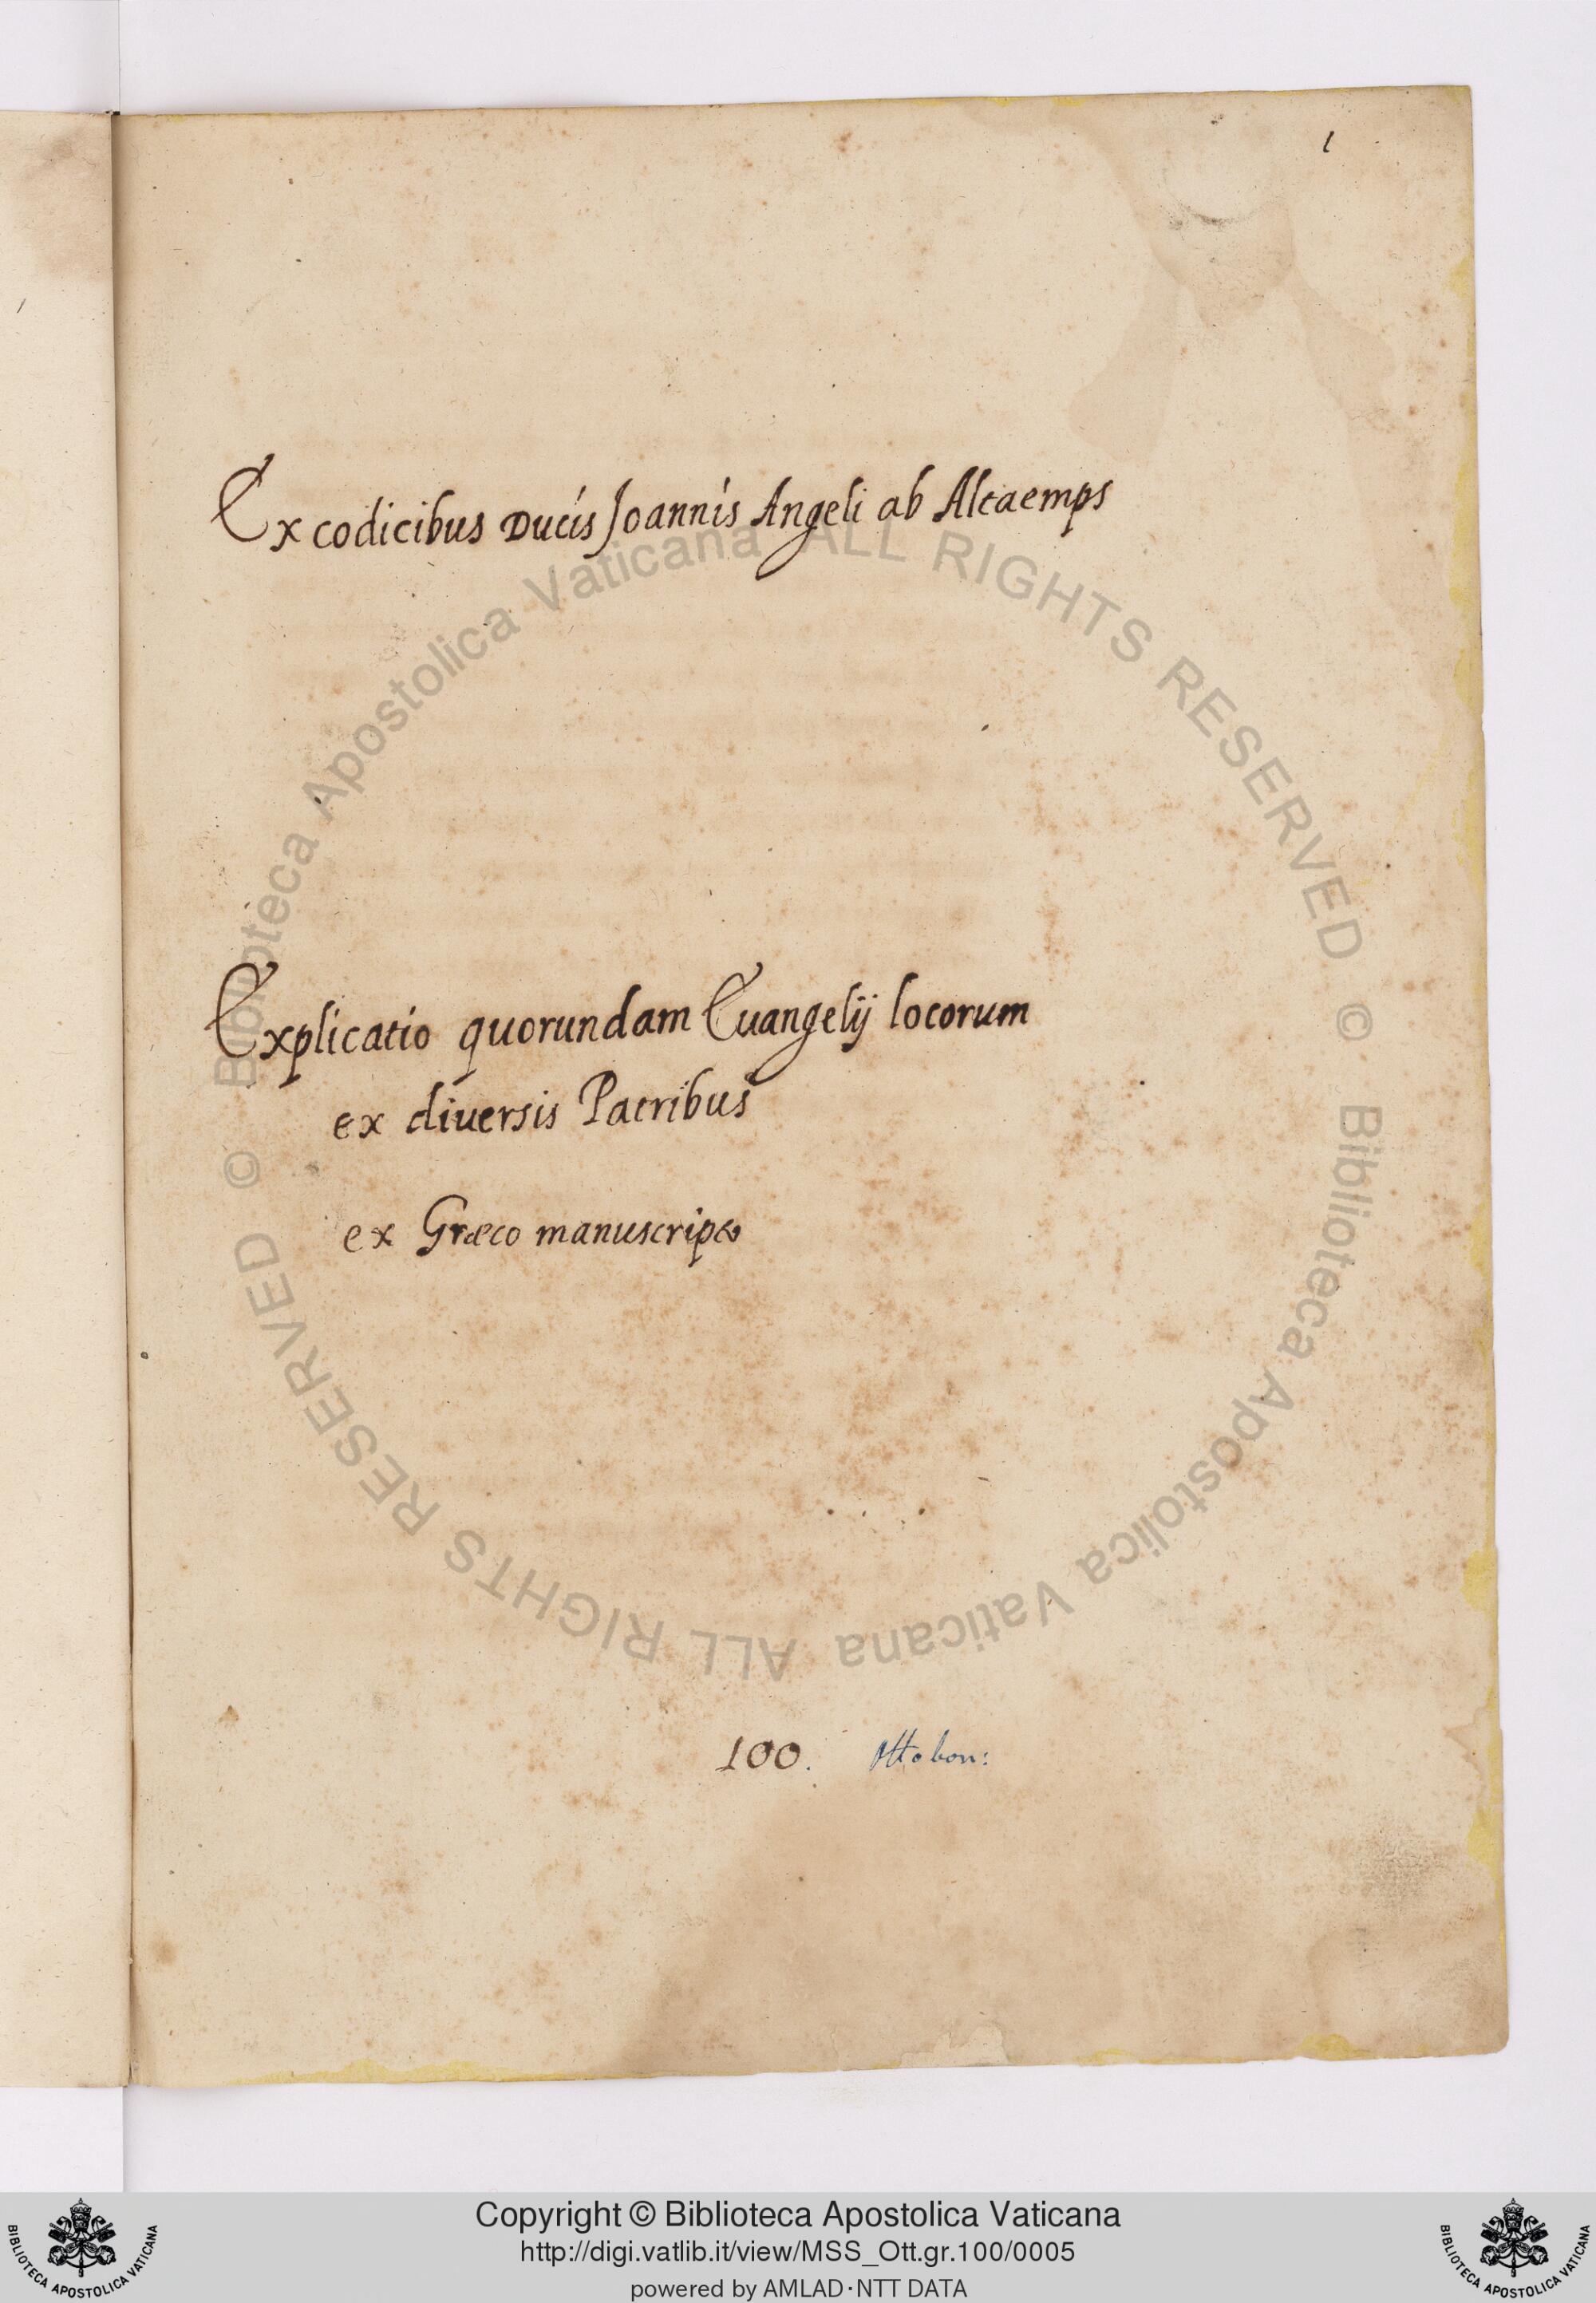 1
Ex codicibus Ducis Joannis Angeli ab Altaemps
Explicatio quorundam Euangelij locorum
ex diuersis Patribus
ex Græco manuscripto
100. Ottobon:
© Biblioteca Apostolica Vaticana ALL RIGHTS RESERVED
© Biblioteca Apostolica Vaticana ALL RIGHTS RESERVED
Copyright © Biblioteca Apostolica Vaticana
http://digi.vatlib.it/view/MSS_Ott.gr.100/0005
powered by AMLAD·NTT DATA
BIBLIOTECA APOSTOLICA VATICANA
BIBLIOTECA APOSTOLICA VATICANA